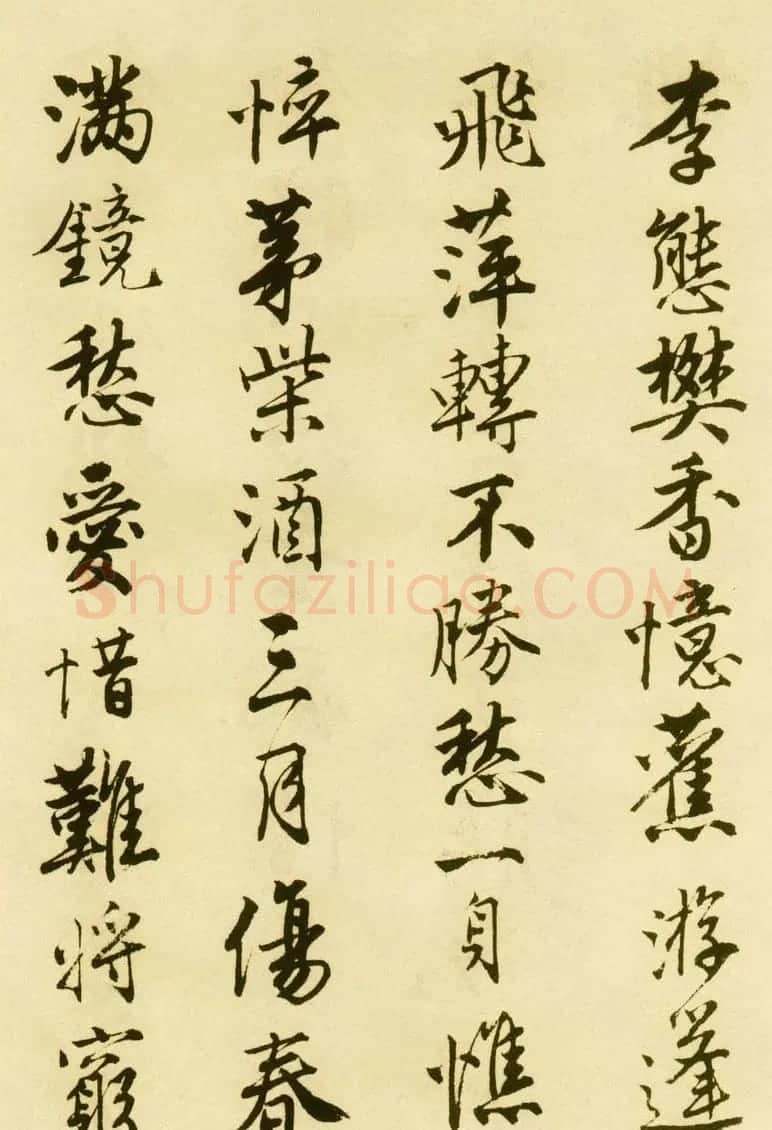 李態樊香憶舊游蓬
飛萍轉不勝愁一身憔
悴茅柴酒三月傷春
滿鏡愁愛惜難將窮
Shufaziliao.COM